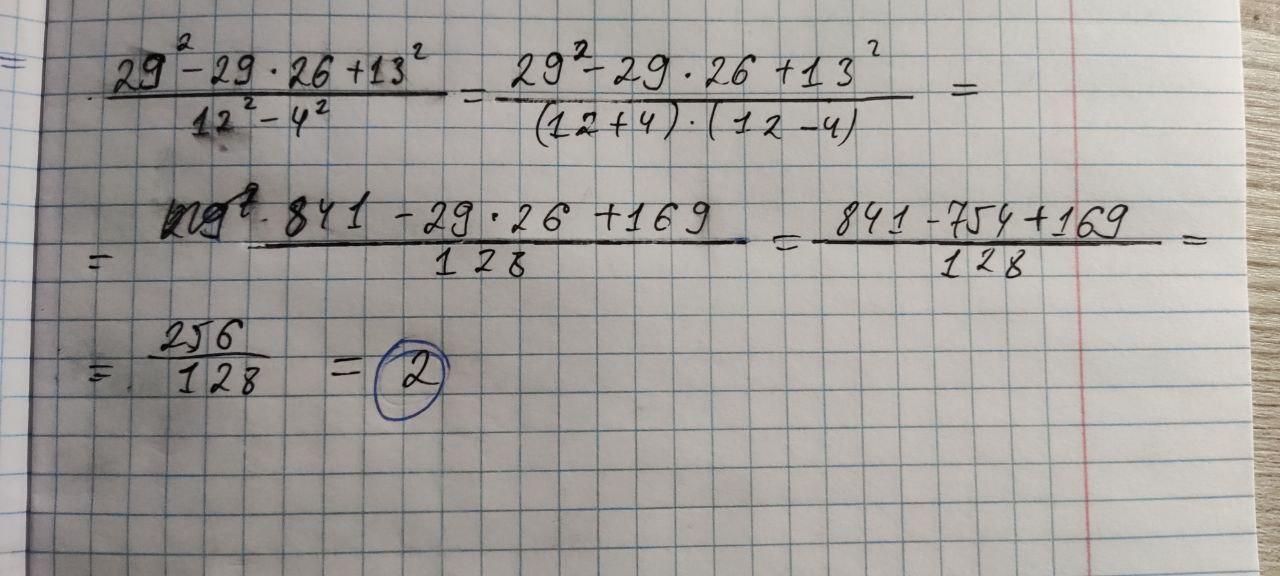 29² - 29 · 26 + 13² / 12² - 4² = 29² - 29 · 26 + 13² / (12 + 4) · (12 - 4) =
= 841 - 29 · 26 + 169 / 128 = 841 - 754 + 169 / 128 =
= 256 / 128 = 2